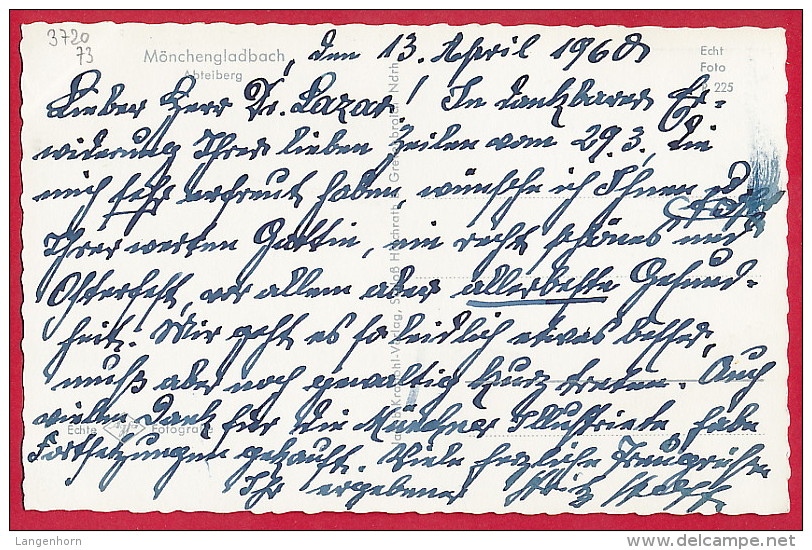 3720
73
Mönchengladbach, den 13. April 1960
Abteiberg
Echt
Foto
P 225
Lieber Herr Dr. Lazar! In dankbarer Er-
widerung Ihrer lieben Zeilen vom 29.3., die
mich sehr erfreut haben, wünsche ich Ihnen u.
Ihrer werten Gattin, ein recht schönes
Osterfest, vor allem aber allerbeste Gesund-
heit. Mir geht es so leidlich etwas besser,
muß aber noch gewaltig kurz treten. Auch
vielen Dank für die Münchner Illustrierte, habe
Fortsetzungen gekauft. Viele herzliche
Ihr ergebener Fritz
Echte Fotografie
Langenhorn
http://www.delcampe.net